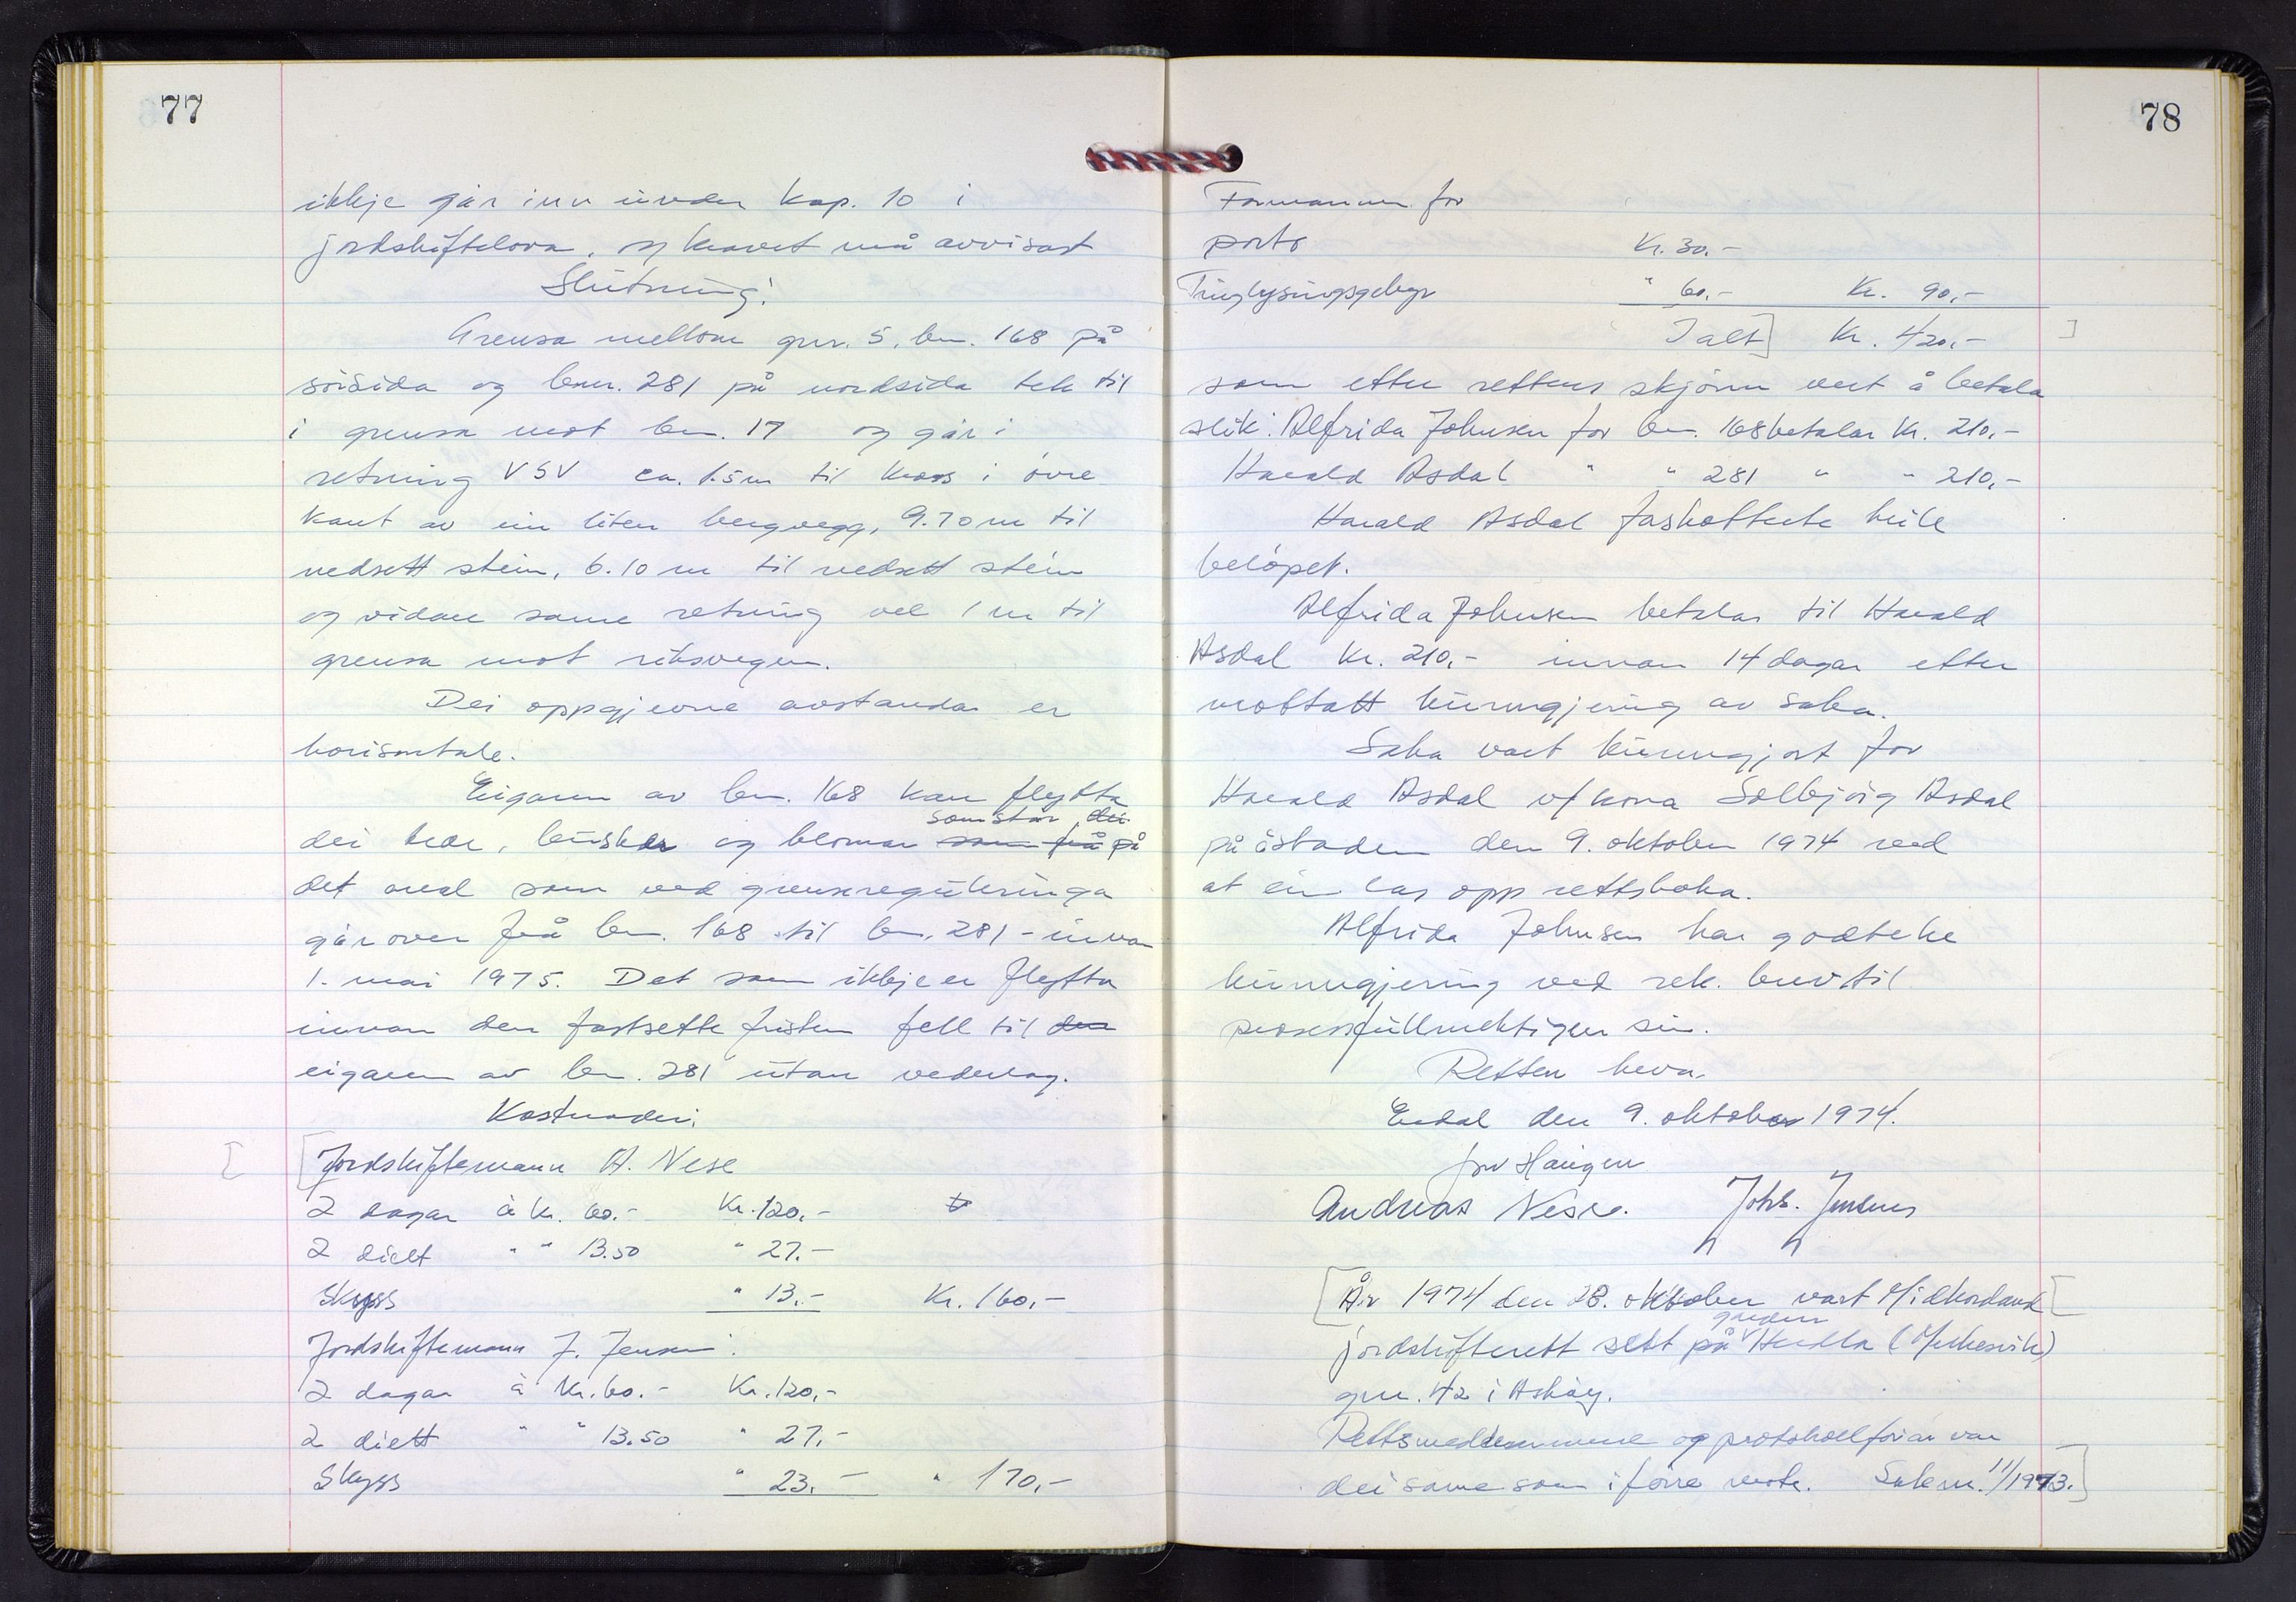 77
ikkje går inn under kap. 10 i
jordskiftelova, og kravet må avvisast
Slutning:
Grensa mellom gnr. 5, bn. 168 på
sørsida og bnr. 281 på nordsida tek til
i grensa mot bn. 17 og går i
retning VSV ca. 1.5 m til kross i øvre
kant av ein liten bergvegg, 9.70 m til
nedsett stein, 6.10 m til nedsett stein
og vidare same retning vel 1 m til
grensa mot riksvegen.
Dei oppgjevne avstandar er
horisontale.
Eigaren av bn. 168 kan flytta
som står dei
dei tre, busker og blomar som frå på
det areal som ved grensereguleringa
går over frå bn. 168 til bn. 281 - innan
1. mai 1975. Det som ikkje er flytta
innan den fastsette fristen fell til den
eigaren av bn. 281 utan vederlag.
Kostnader:
[Jordskiftemann A. Nese
2 dagar à kr. 60.- Kr. 120,-
2 diett " " 13.50 " 27.-
Skyss " 13.- Kr. 160,-
Jordskiftemann J. Jensen:
2 dagar à Kr. 60.- Kr. 120,-
2 diett " " 13.50 " 27,-
Skyss " 23.- " 170,-
78
Formannen for
porto Kr. 30.-
Tinglysingsgebyr " 60.- Kr. 90,-
I alt] Kr. 420,- ]
som etter rettens skjønn vert å betala
slik: Alfrida Johnsen for bn. 168 betalar kr. 210,-
Harald Asdal " " 281 " " 210,-
Harald Asdal forskotterte heile
beløpet.
Alfrida Johnsen betalar til Harald
Asdal kr. 210,- innan 14 dagar etter
mottatt kunngjering av saka.
Saka vart kunngjort for
Harald Asdal v/kona Solbjørg Asdal
på åstaden den 9. oktober 1974 ved
at ein las opp rettsboka.
Alfrida Johnsen har godteke
kunngjering ved rek. brev til
prosessfullmektigen sin.
Retten heva.
Erdal den 9. oktober 1974.
Haugen
Andreas Nese. Johs. Jensen
[År 1974 den 28. oktober vart Midhordland [
garden
jordskifterett sett på Herdla
gnr. 42 i Askøy.
Rettsmedlemmene og protokollførar var
dei same som i førre møte. Sak nr. 11/1973.]